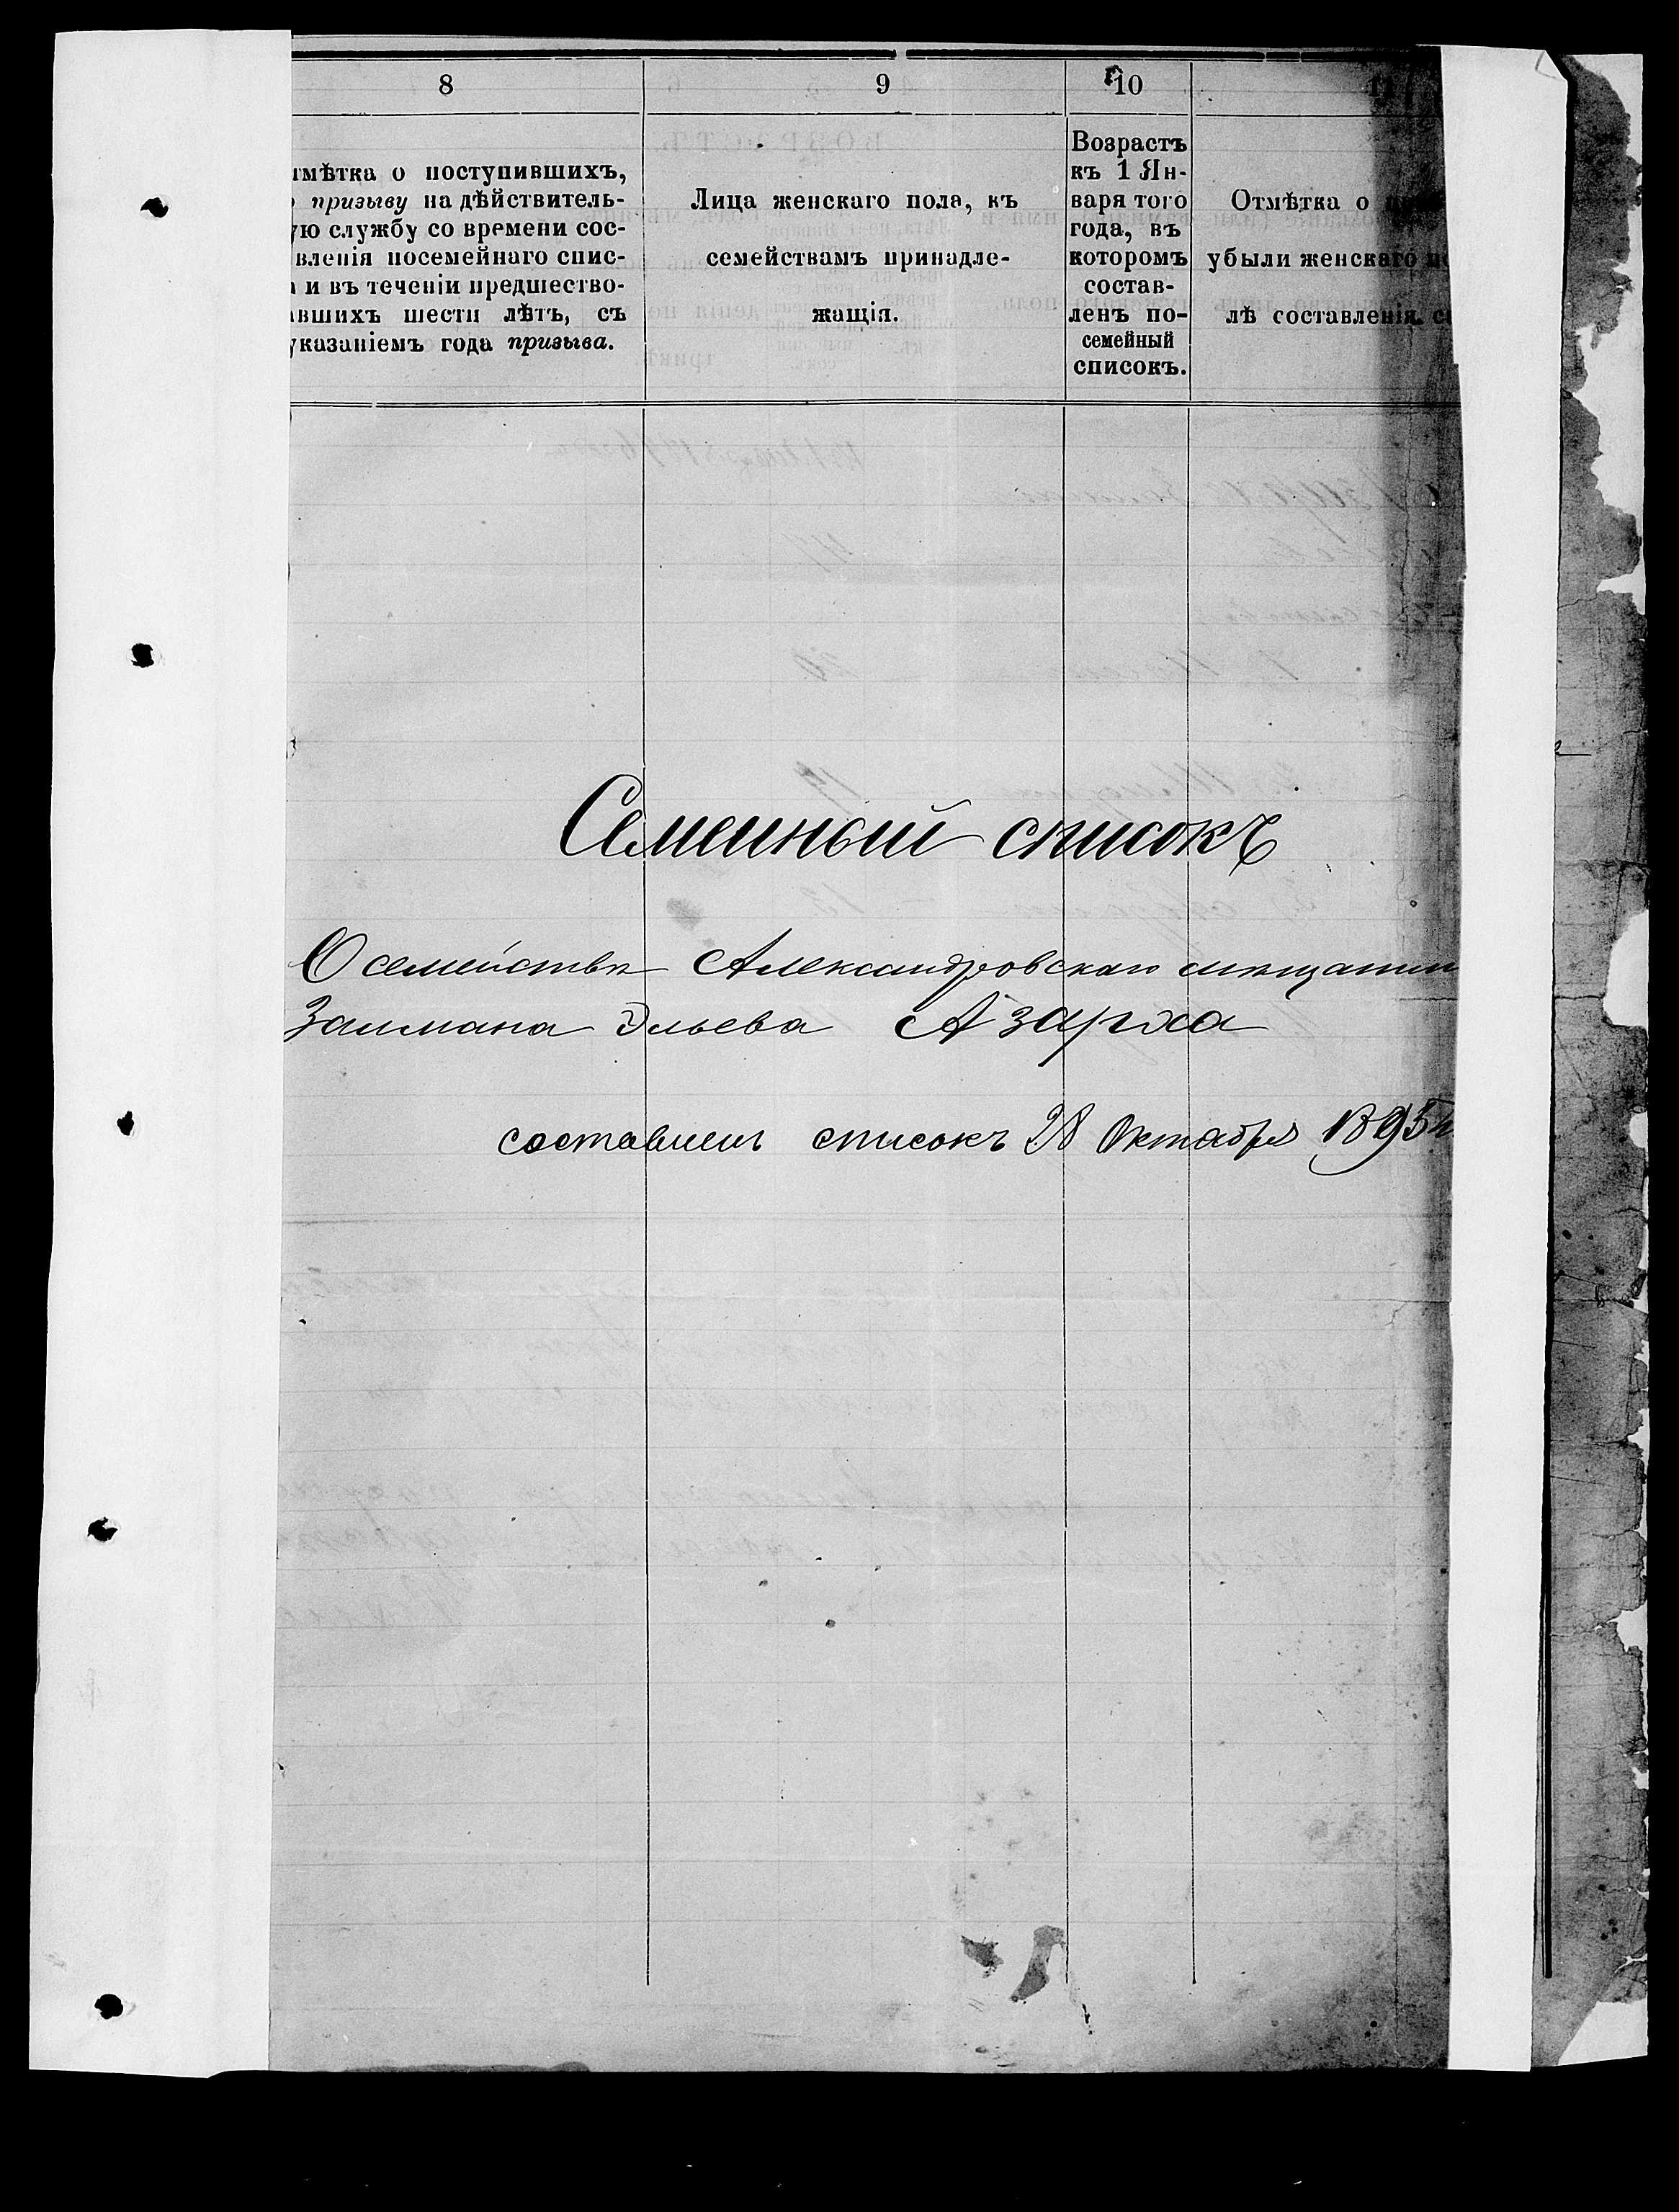 8
9
10
11
тмѣтка о поступившихъ,
о призыву на дѣйствитель-
ую службу со времени сос-
вленія посемейнаго спис-
и въ теченіи предшество-
авшихъ шести лѣтъ, съ
указаніемъ года призыва.
Лица женскаго пола, къ
семействамъ принадле-
жащія.
Возрастъ
къ 1 Ян-
варя того
года, въ
которомъ
состав-
ленъ по-
семейный
списокъ.
Отмѣтка о
убыли женскаго
лѣ составленія
Семейный списокъ
О семействѣ Александровскаго мѣщанин
Залмана Эльева Азарха
составленъ списокъ 28 Октября 1895 г